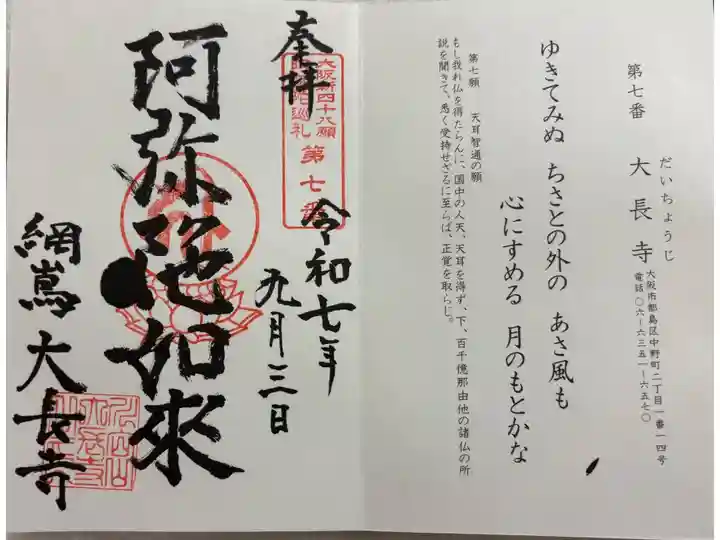 第七番 大長寺
だいちょうじ
大阪市都島区中野町二丁目一番一四号
電話〇六ー六三五一ー六五七〇
ゆきてみぬ ちさとの外の あさ風も
心にすめる 月のもとかな
第七願 天耳智通の願
もし我れ仏を得たらんに、国中の人天、天耳を得ず、下、百千億那由他の諸仏の所
説を聞きて、悉く受持せざるに至らば、正覚を取らじ。
奉拝
大阪新四十八願
阿弥陀巡礼
第七番
令和七年
九月三日
阿弥陀如來
網嶌 大長寺